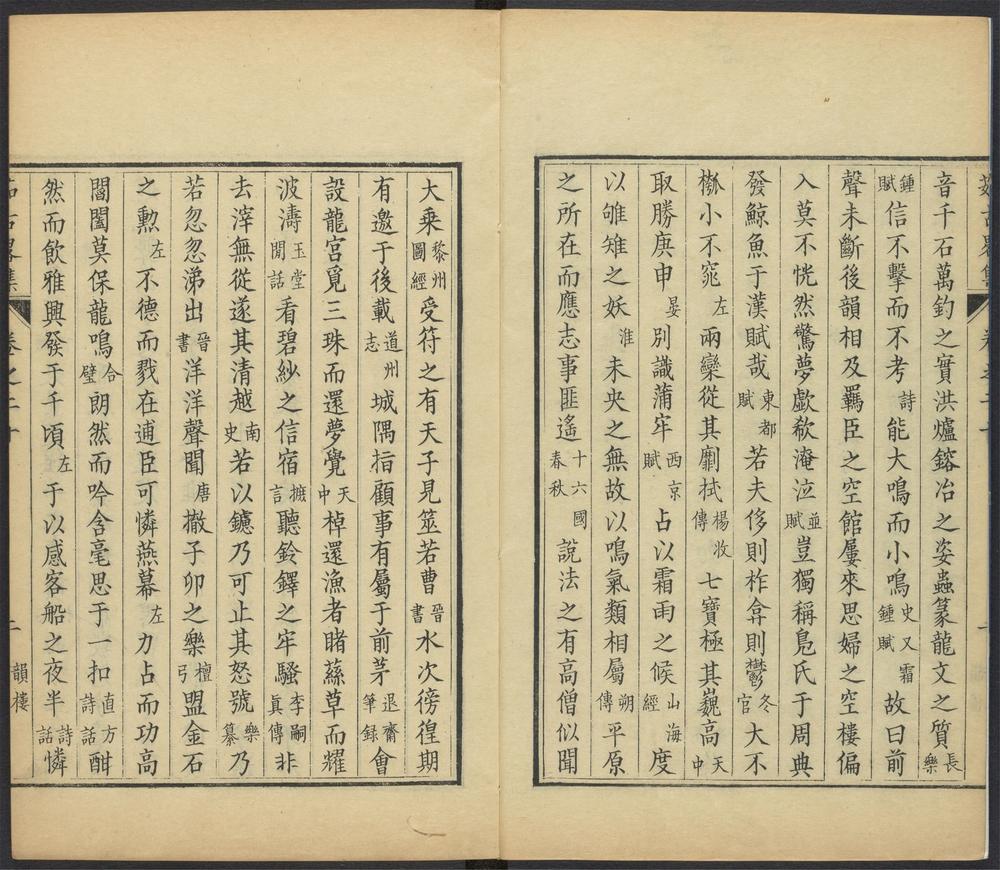 音千石萬鈞之實洪爐鎔冶之姿蟲篆龍文之質長樂
鍾賦信不擊而不考詩能大鳴而小鳴史又霜鍾賦故曰前
聲未斷後韻相及羈臣之空館屢來思婦之空樓偏
入莫不恍然驚夢歔欷淹泣並賦豈獨稱鳧氏于周典
發鯨魚于漢賦哉東都賦若夫侈則柞弇則鬱冬官大不
槬小不窕左兩欒從其劘栻楊收傳七寶極其巍高天中
取勝庚申晏別識蒲牢西京賦占以霜雨之候山海經度
以雊雉之妖淮未央之無故以鳴氣類相屬朔傳平原
之所在而應志事匪遙十六國春秋說法之有高僧似聞
大乘黎州圖經受符之有天子見筮若曹晉書水次徬徨期
有邀于後載道州志城隅指顧事有屬于前茅退齋筆錄會
設龍宮覓三珠而還夢覺天中棹還漁者睹蘓草而耀
波濤玉堂閒話看碧紗之信宿摭言聽鈴鐸之牢騷李嗣真傳非
去滓無從遂其清越南史若以鑢乃可止其怒號樂纂乃
若忽忽涕出晉書洋洋聲聞唐撤子卯之樂檀弓盟金石
之勲左不德而戮在逋臣可憐燕幕左力占而功高
闔闔莫保龍鳴合璧朗然而吟含毫思于一扣直方詩話酣
然而飲雅興發于千頃左于以感客船之夜半詩話憐
卷之二十
二
韻樓